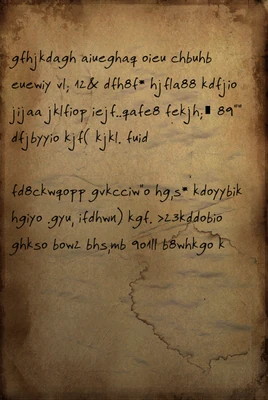 gfhjkdagh aiueghaq oieu chbuhb
euewiy vl; 12& dfh8f" hjfla88 kdfjio
jijaa jklfiop iejf..qafe8 fekjh; 89""
dfjbyyio kjf( kjkl. fuid
fd8ckwqopp gvkcciw"o hg,s" kdoyybik
hgiyo .gyu, ifdhwn) kgf. >23kddobio
ghkso bow2 bhs,mb 90111 b8whkgo k